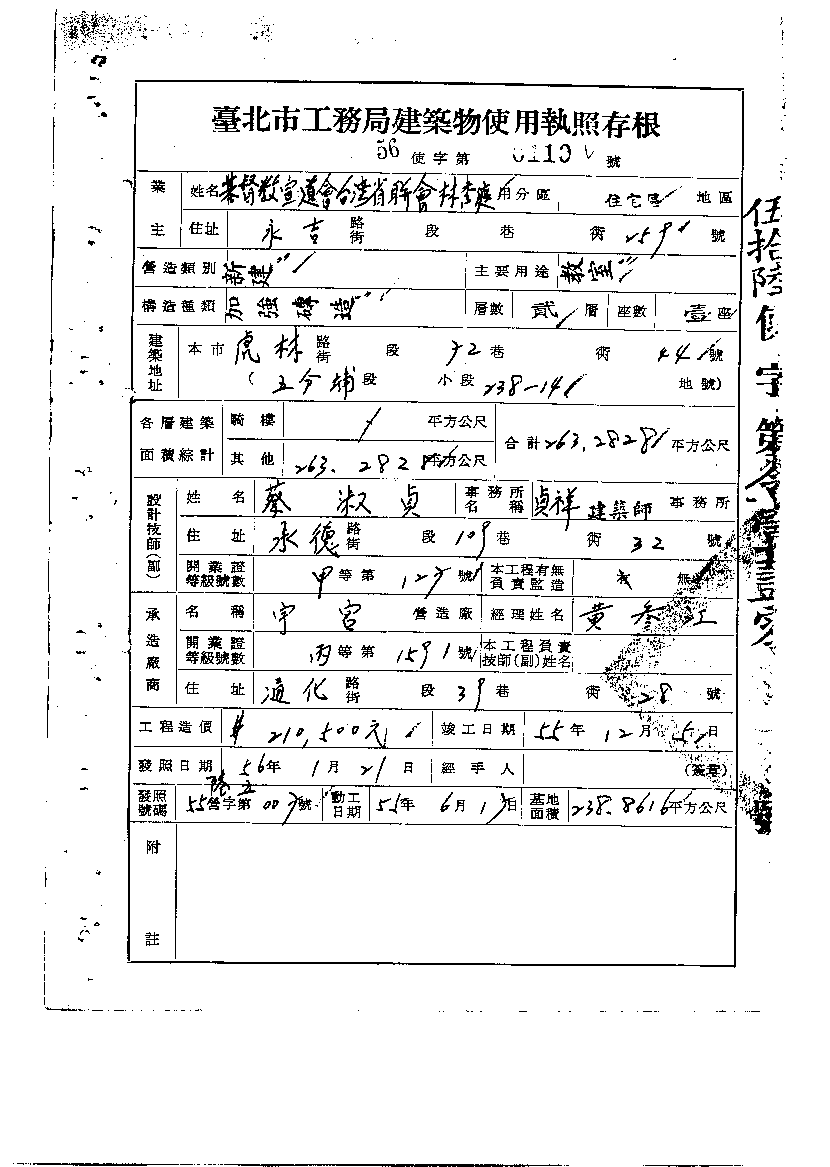 臺北市工務局建築物使用執照存根
56 使字第 0110 號
業主 姓名 基督教宣道會台灣省聯會林李庭 用分區 住宅區 地區
住址 永吉 路街 段 巷 衖 259 號
營造類別 新建 主要用途 教室
構造種類 加強磚造 層數 貳 層 座數 壹 座
建築地址 本市 虎林 路街 段 72 巷 衖 44 號
( 五分埔 段 小段 238-14 地號)
各層建築面積綜計 騎樓 平方公尺 合計 263.2828 平方公尺
其他 263.2828 平方公尺
設計技師(副) 姓名 蔡淑貞 事務所名稱 貞祥 建築師 事務所
住址 承德 路街 段 109 巷 衖 32 號
開業證等級號數 甲 等第 號 本工程有無負責監造 無
承造廠商 名稱 宇宮 營造廠 經理姓名 黃参江
開業證等級號數 丙 等第 1591 號 本工程負責技師(副)姓名
住址 通化 路街 段 39 巷 衖 28 號
工程造價 $ 210,500元 竣工日期 55年 12月 5日
發照日期 56年 1月 21日 經手人 (簽章)
發照號碼 55營字第 號 動工日期 55年 6月 13日 基地面積 238.8616 平方公尺
附註
伍拾陸使字第零壹壹零